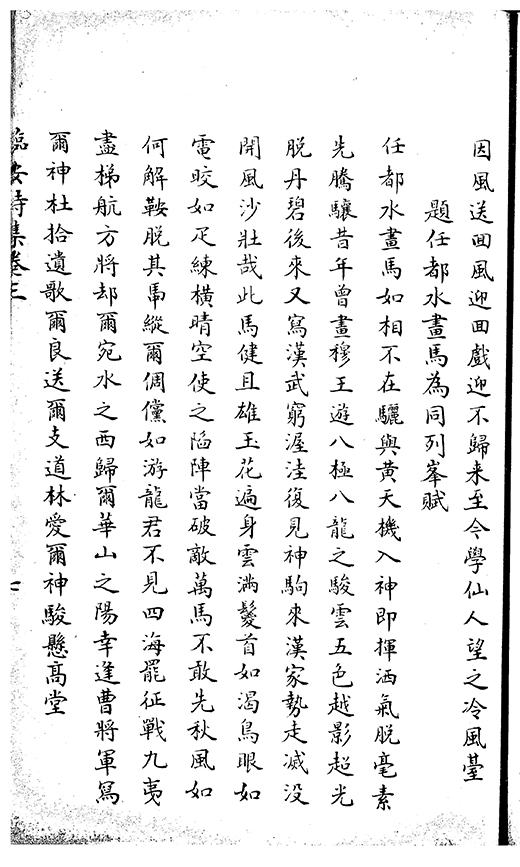 因風送回風迎回戲迎不歸来至今學仙人望之冷風臺
題任都水畫馬為同列峯賦
任都水畫馬如相不在驪與黄天機入神即揮洒氣脱毫素
先騰驤昔年曾畫穆王遊八極八龍之駿雲五色越影超光
脱丹碧後來又寫漢武窮渥洼復見神駒來漢家勢走滅没
開風沙壯哉此馬健且雄玉花遍身雲滿鬉首如渴烏眼如
電皎如疋練横晴空使之陷陣當破敵萬馬不敢先秋風如
何解鞍脱其馽縱爾倜儻如游龍君不見四海罷征戰九夷
盡梯航方將却爾宛水之西歸爾華山之陽幸逢曹將軍寫
爾神杜拾遺歌爾良送爾支道林愛爾神駿懸髙堂
臨安詩集卷三
七